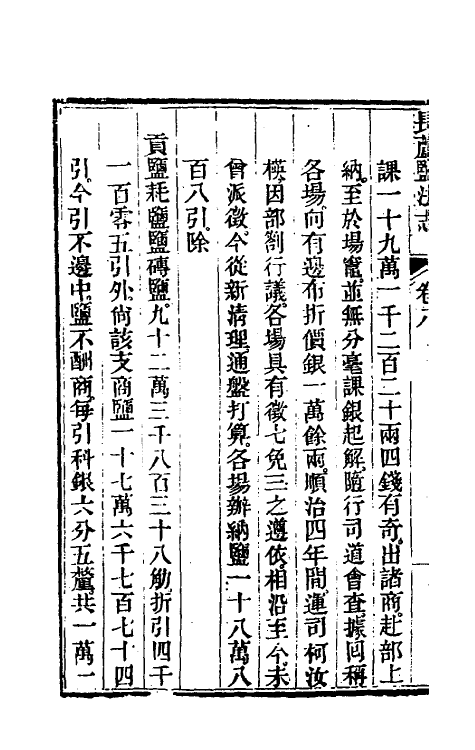 長蘆鹽法志 卷八
課一十九萬一千二百二十兩四錢有奇。出諸商。赴部上
納。至於場竈。並無分毫課銀起解。隨行司道會查。據囘稱
各場。向有邊布折價銀一萬餘兩。順治四年閒。運司柯汝
楧。因部劄行議。各場具有徵七免三之遵依。相沿至今。未
曾派徵。今從新清理。通盤打算。各場辦納鹽一十八萬八
百八引。除
貢鹽耗鹽鹽磚鹽。九十二萬三千八百三十八觔。折引四千
一百零五引外。尙該支商鹽一十七萬六千七百七十四
引。今引不邊中。鹽不酬商。每引科銀六分五釐。共一萬一